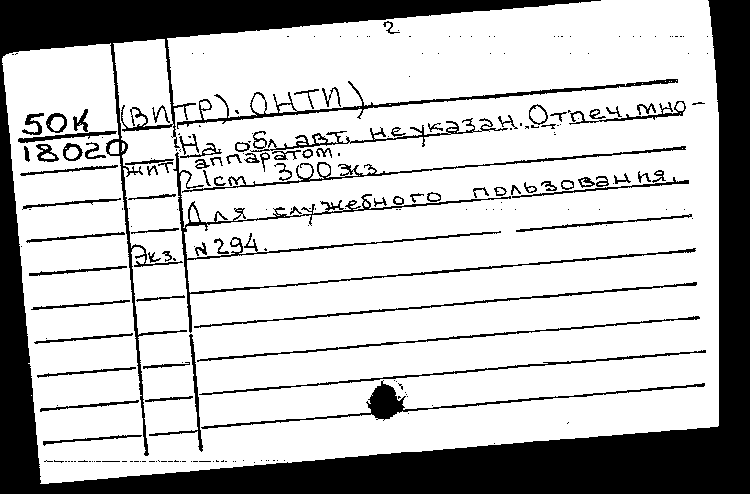 2
50К (ВИТР). ОНТИ).
18020 На обл. авт. не указан. Отпеч. мно-
жит. аппаратом.
21 см. 300 экз.
Для служебного пользования.
Экз. №294.